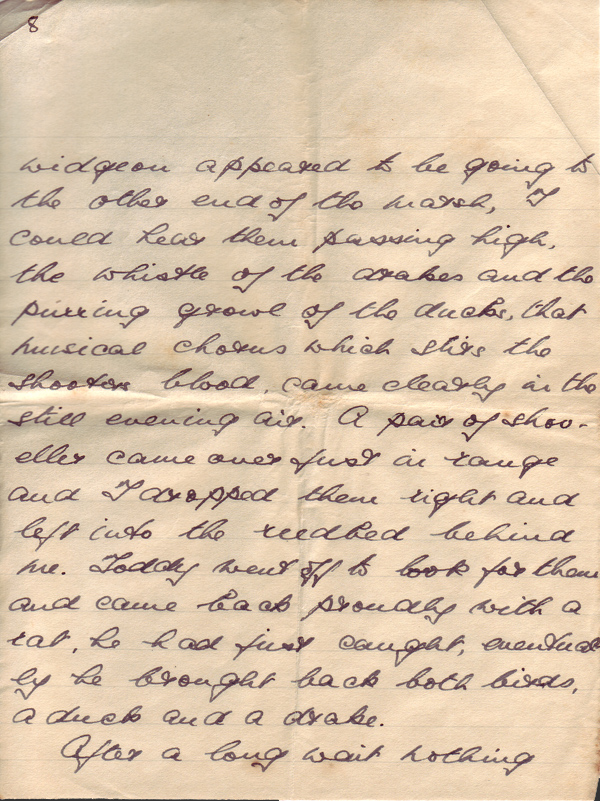 8
widgeon appeared to be going to
the other end of the marsh, I
could hear them passing high,
the whistle of the drakes and the
purring growl of the ducks, that
musical chorus which stirs the
shooters blood, came clearly in the
still evening air. A pair of shov-
eller came over just in range
and I dropped them right and
left into the reedbed behind
me. Toddy went off to look for them
and came back proudly with a
rat, he had just caught, eventual
ly he brought back both birds,
a duck and a drake.
After a long wait nothing